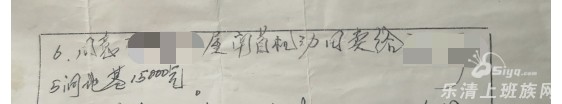 6.
屋前首机动田卖给
5间地基15000元。
Siyq.com
乐清上班族网